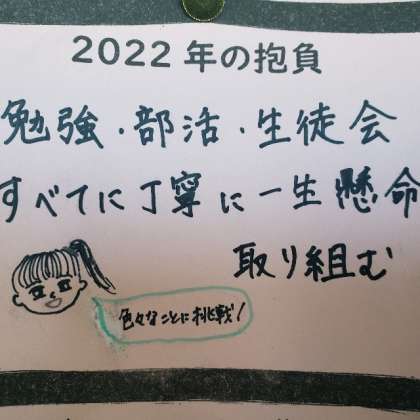 2022年の抱負
勉強・部活・生徒会
すべてに丁寧に一生懸命
取り組む
色々なことに挑戦!